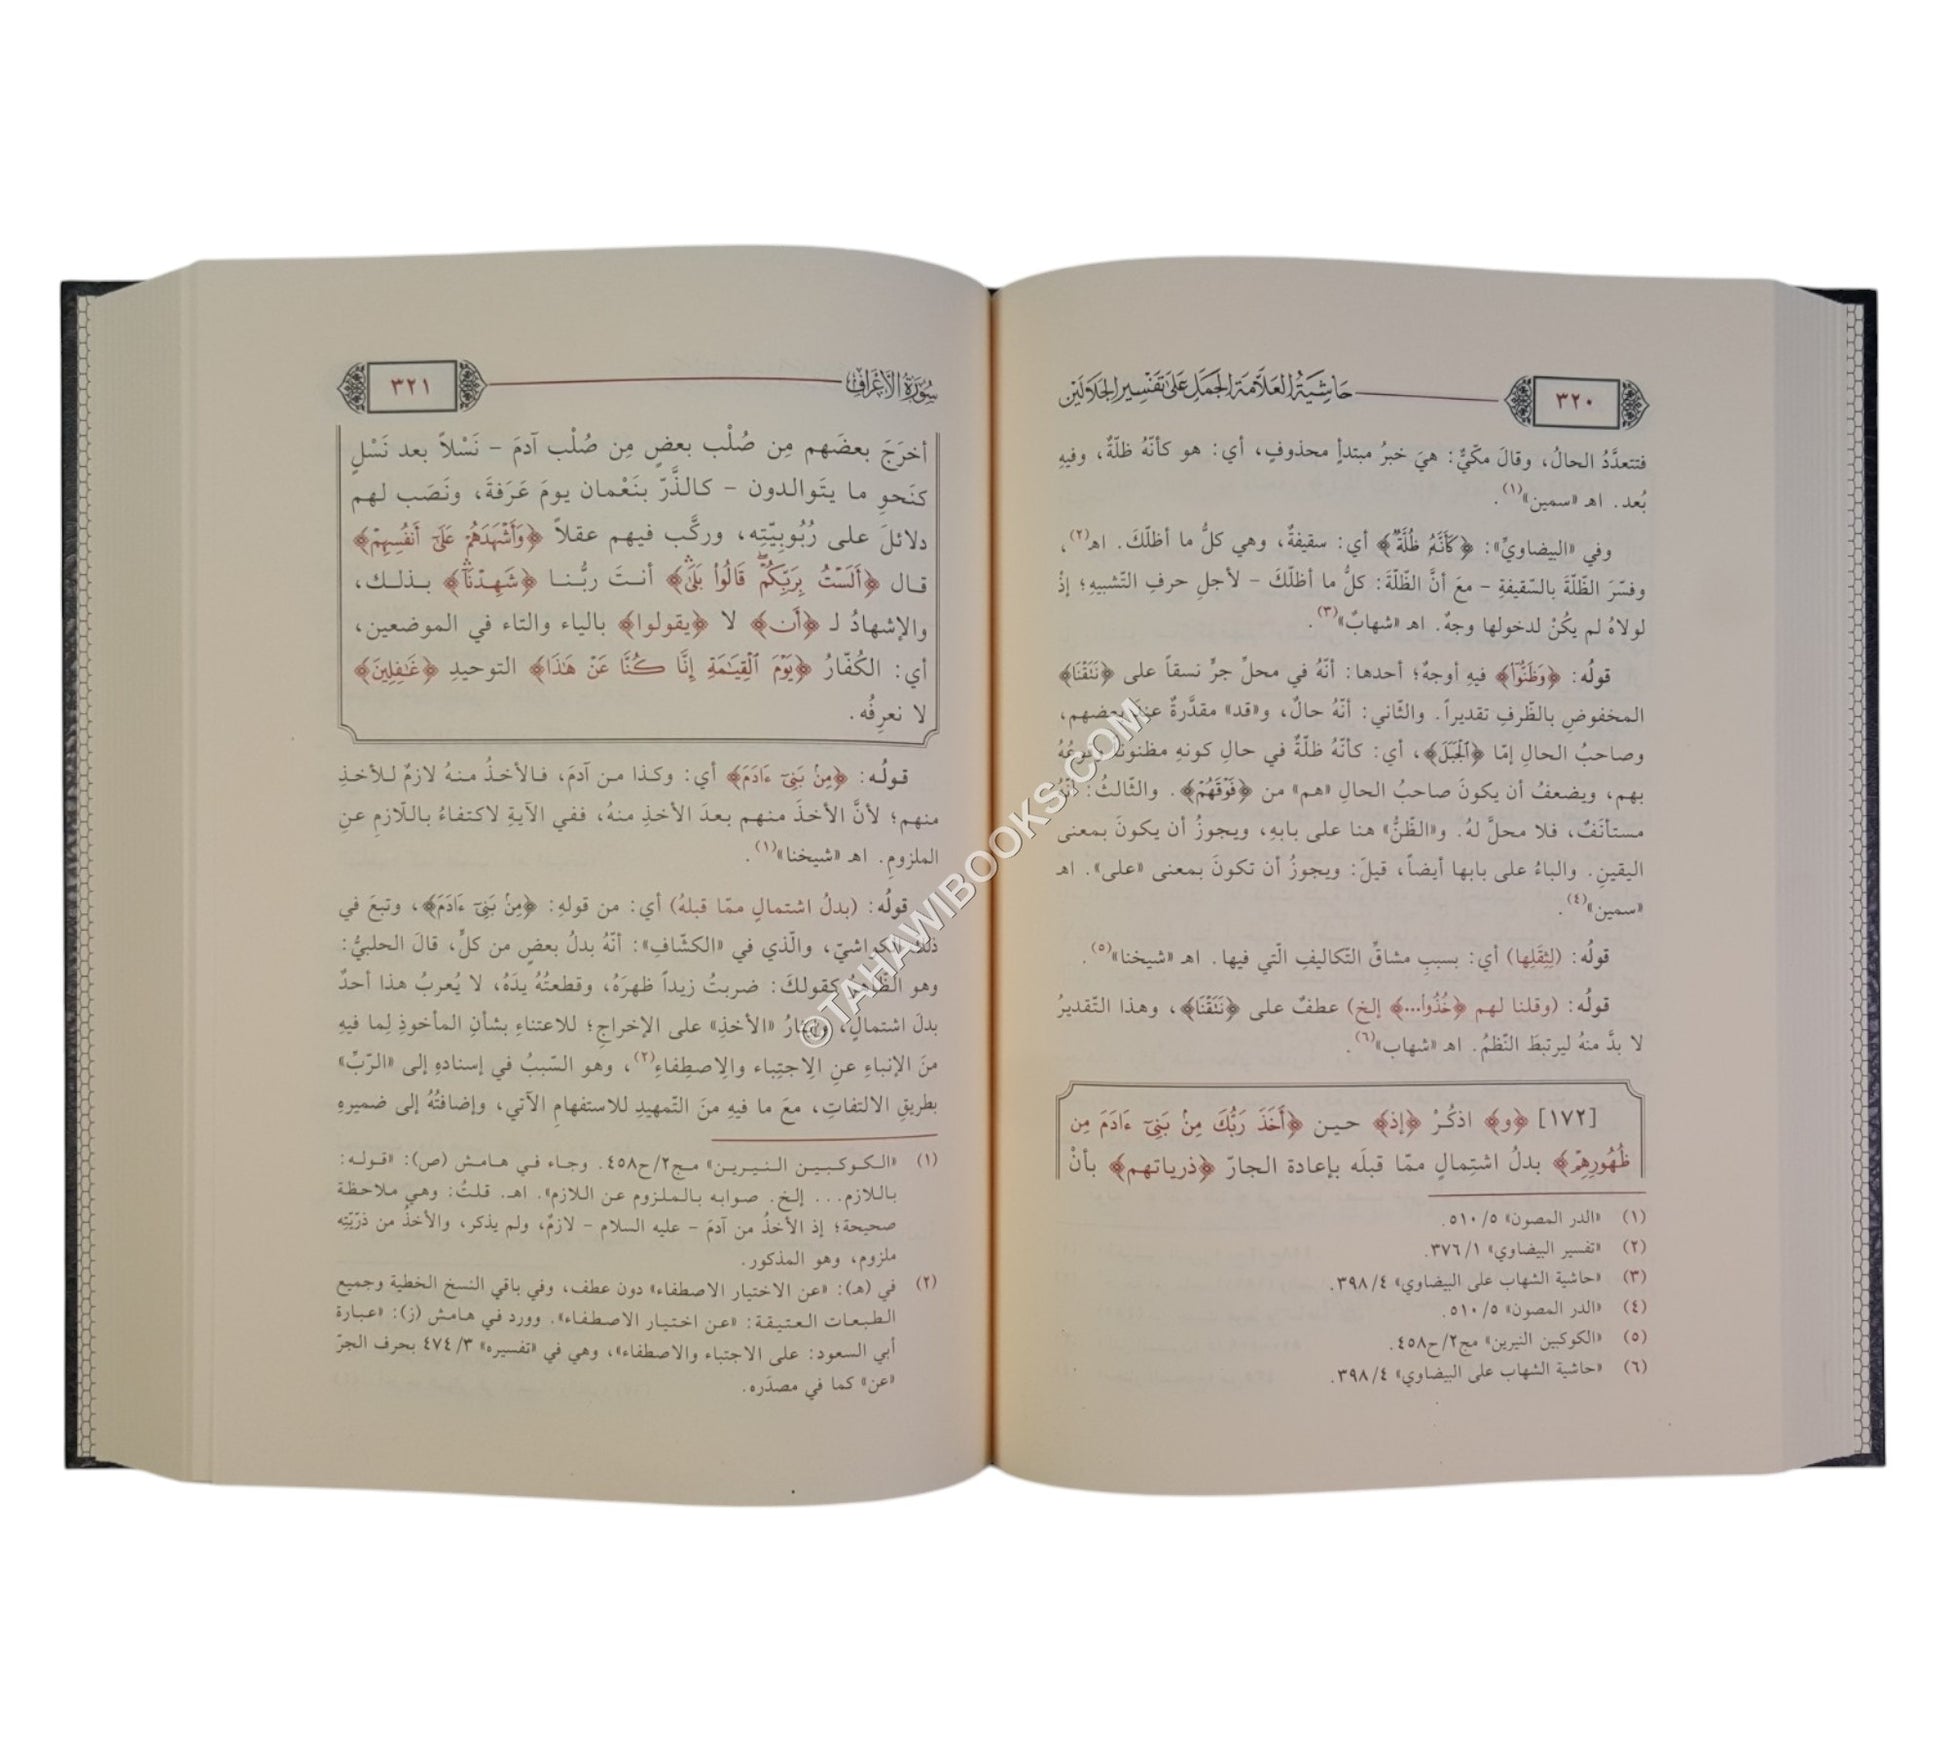 ٣٢٠
حَاشِيَةُ العَلَّامَة الجَمَل عَلَى تَفْسِير الجَلَالَيْن
فتتعدَّدُ الحالُ، وقالَ مكّيٌّ: هيَ خبرُ مبتدأٍ محذوفٍ، أي: هو كأنّهُ ظلّةٌ، وفيهِ
بُعد. اهـ «سمين»(١).
وفي «البيضاويِّ»: ﴿كَأَنَّهُۥ ظُلَّةٌ﴾ أي: سقيفةٌ، وهي كلُّ ما أظلّكَ. اهـ(٢)،
وفسّرَ الظّلّةَ بالسّقيفةِ - معَ أنَّ الظّلّةَ: كلُّ ما أظلّكَ - لأجلِ حرفِ التّشبيهِ؛ إذْ
لولاهُ لم يكُنْ لدخولها وجهٌ. اهـ «شهابٌ»(٣).
قولُه: ﴿وَظَنُّوٓاْ﴾ فيهِ أوجهٌ؛ أحدها: أنّهُ في محلِّ جرٍّ نسقاً على ﴿نَتَقْنَا﴾
المخفوضِ بالظّرفِ تقديراً. والثّاني: أنّهُ حالٌ، و«قد» مقدَّرةٌ عندَ بعضهم،
وصاحبُ الحالِ إمّا ﴿ٱلْجَبَلَ﴾، أي: كأنّهُ ظلّةٌ في حالِ كونهِ مظنوناً وقوعُهُ
بهم، ويضعفُ أن يكونَ صاحبُ الحالِ «هم» من ﴿فَوْقَهُمْ﴾. والثّالثُ: أنّهُ
مستأنَفٌ، فلا محلَّ لهُ. و«الظّنُّ» هنا على بابهِ، ويجوزُ أن يكونَ بمعنى
اليقينِ. والباءُ على بابها أيضاً، قيلَ: ويجوزُ أن تكونَ بمعنى «على». اهـ
«سمين»(٤).
قولُه: (لِثِقَلِها) أي: بسببِ مشاقِّ التّكاليفِ الّتي فيها. اهـ «شيخنا»(٥).
قولُه: (وقلنا لهم ﴿خُذُواْ...﴾ إلخ) عطفٌ على ﴿نَتَقْنَا﴾، وهذا التّقديرُ
لا بدَّ منهُ ليرتبطَ النّظمُ. اهـ «شهاب»(٦).
[١٧٢] ﴿و﴾ اذكُرْ ﴿إذ﴾ حين ﴿أَخَذَ رَبُّكَ مِنۢ بَنِىٓ ءَادَمَ مِن
ظُهُورِهِمْ﴾ بدلُ اشتِمالٍ ممّا قبلَه بإعادة الجارّ ﴿ذرياتهم﴾ بأنْ
(١) «الدر المصون» ٥/ ٥١٠.
(٢) «تفسير البيضاوي» ١/ ٣٧٦.
(٣) «حاشية الشهاب على البيضاوي» ٤/ ٣٩٨.
(٤) «الدر المصون» ٥/ ٥١٠.
(٥) «الكوكبين النيرين» مج٢/ح٤٥٨.
(٦) «حاشية الشهاب على البيضاوي» ٤/ ٣٩٨.
سُورَةُ الأَعْرَافِ
٣٢١
أخرَجَ بعضَهم مِن صُلْب بعضٍ مِن صُلْب آدمَ - نَسْلاً بعد نَسْلٍ
كنَحوِ ما يتَوالدون - كالذَّرّ بنَعْمان يومَ عَرَفةَ، ونَصَب لهم
دلائلَ على رُبُوبِيّتِه، وركَّب فيهم عقلاً ﴿وَأَشْهَدَهُمْ عَلَىٰٓ أَنفُسِهِمْ﴾
قال ﴿أَلَسْتُ بِرَبِّكُمْ ۖ قَالُواْ بَلَىٰ ۛ﴾ أنتَ ربُّنا ﴿شَهِدْنَآ ۛ﴾ بذلك،
والإشهادُ لـ ﴿أَن﴾ لا ﴿يقولوا﴾ بالياء والتاء في الموضعين،
أي: الكُفّارُ ﴿يَوْمَ ٱلْقِيَـٰمَةِ إِنَّا كُنَّا عَنْ هَـٰذَا﴾ التوحيدِ ﴿غَـٰفِلِينَ﴾
لا نعرِفُه.
قولُه: ﴿مِنۢ بَنِىٓ ءَادَمَ﴾ أي: وكذا من آدمَ، فالأخذُ منهُ لازمٌ للأخذِ
منهم؛ لأنَّ الأخذَ منهم بعدَ الأخذِ منهُ، ففي الآيةِ لاكتفاءُ باللّازمِ عنِ
الملزومِ. اهـ «شيخنا»(١).
قولُه: (بدلُ اشتمالٍ ممّا قبلهُ) أي: من قولهِ: ﴿مِنۢ بَنِىٓ ءَادَمَ﴾، وتبعَ في
ذلكَ الكواشيّ، والّذي في «الكشّافِ»: أنّهُ بدلُ بعضٍ من كلٍّ، قالَ الحلبيُّ:
وهو الظّاهرُ كقولكَ: ضربتُ زيداً ظهرَهُ، وقطعتُهُ يدَهُ، لا يُعربُ هذا أحدٌ
بدلَ اشتمالٍ، وإيثارُ «الأخذِ» على الإخراجِ؛ للاعتناءِ بشأنِ المأخوذِ لِما فيهِ
منَ الإنباءِ عنِ الِاجتِباء والِاصطِفاءِ(٢)، وهو السّببُ في إسنادهِ إلى «الرّبِّ»
بطريقِ الالتفاتِ، معَ ما فيهِ منَ التّمهيدِ للاستفهامِ الآتي، وإضافتُهُ إلى ضميرهِ
(١) «الكوكبين النيرين» مج٢/ح٤٥٨. وجاء في هامش (ص): «قوله:
باللازم... إلخ. صوابه بالملزوم عن اللازم». اهـ. قلتُ: وهي ملاحظة
صحيحة؛ إذ الأخذُ من آدمَ - عليه السلام - لازمٌ، ولم يذكر، والأخذُ من ذرّيّتِه
ملزوم، وهو المذكور.
(٢) في (هـ): «عن الاختيار الاصطفاء» دون عطف، وفي باقي النسخ الخطية وجميع
الطبعات العتيقة: «عن اختيار الاصطفاء». وورد في هامش (ز): «عبارة
أبي السعود: على الاجتباء والاصطفاء»، وهي في «تفسيره» ٣/ ٤٧٤ بحرف الجرّ
«عن» كما في مصدَره.
©TAHAWIBOOKS.COM